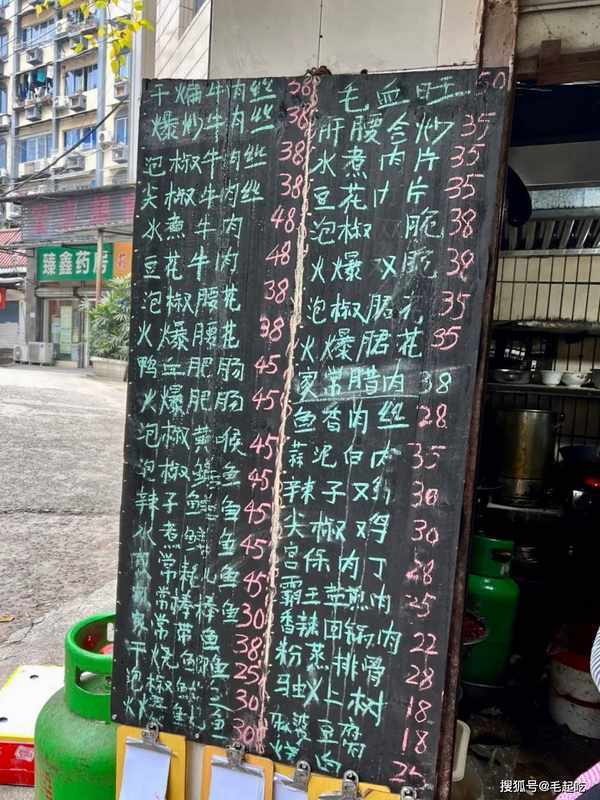 臻鑫药房
干煸牛肉丝 38
爆炒牛肉丝 38
泡椒牛肉丝 38
尖椒牛肉丝 38
水煮牛肉 48
豆花牛肉 48
泡椒腰花 38
火爆腰花 38
鸭血肥肠 45
火爆肥肠 45
泡椒黄喉 45
泡椒鳝鱼 45
辣子 鱼 45
水煮 鱼 45
常 鱼 45
常 棒棒鱼 30
常带鱼 38
干烧 鱼 25
泡椒 30
火 30
毛血旺 50
肝腰合炒 35
水煮肉片 35
豆花肉片 35
泡椒 脆 38
火爆双脆 38
泡椒 花 35
火爆 花 35
家常腊肉 38
鱼香肉丝 28
蒜泥白肉 35
辣子鸡 30
尖椒鸡 30
宫保肉丁 28
霸王 肉 25
香辣回锅肉 22
粉蒸排骨 28
蚂蚁上树 18
麻婆豆腐 18
烧 25
搜狐号@毛起吃